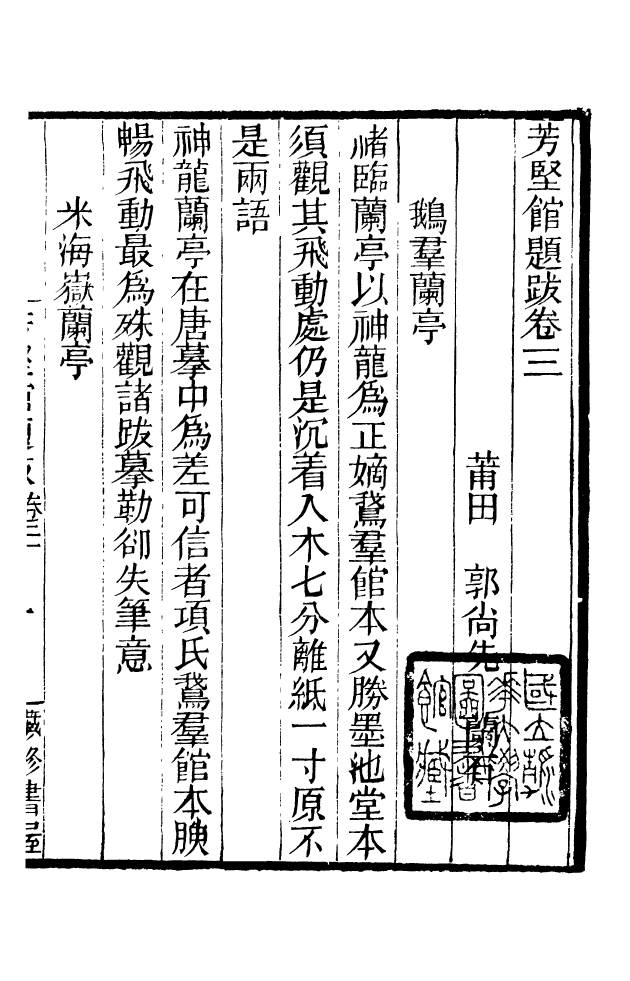 芳堅館題跋卷三
莆田　郭尚先　蘭石
鵝羣蘭亭
褚臨蘭亭以神龍爲正嫡鵞羣館本又勝墨池堂本
須觀其飛動處仍是沉着入木七分離紙一寸原不
是兩語
神龍蘭亭在唐摹中爲差可信者項氏鵞羣館本腴
暢飛動最爲殊觀諸跋摹勒卻失筆意
米海嶽蘭亭
芳堅館題跋卷三　一　藏修書屋